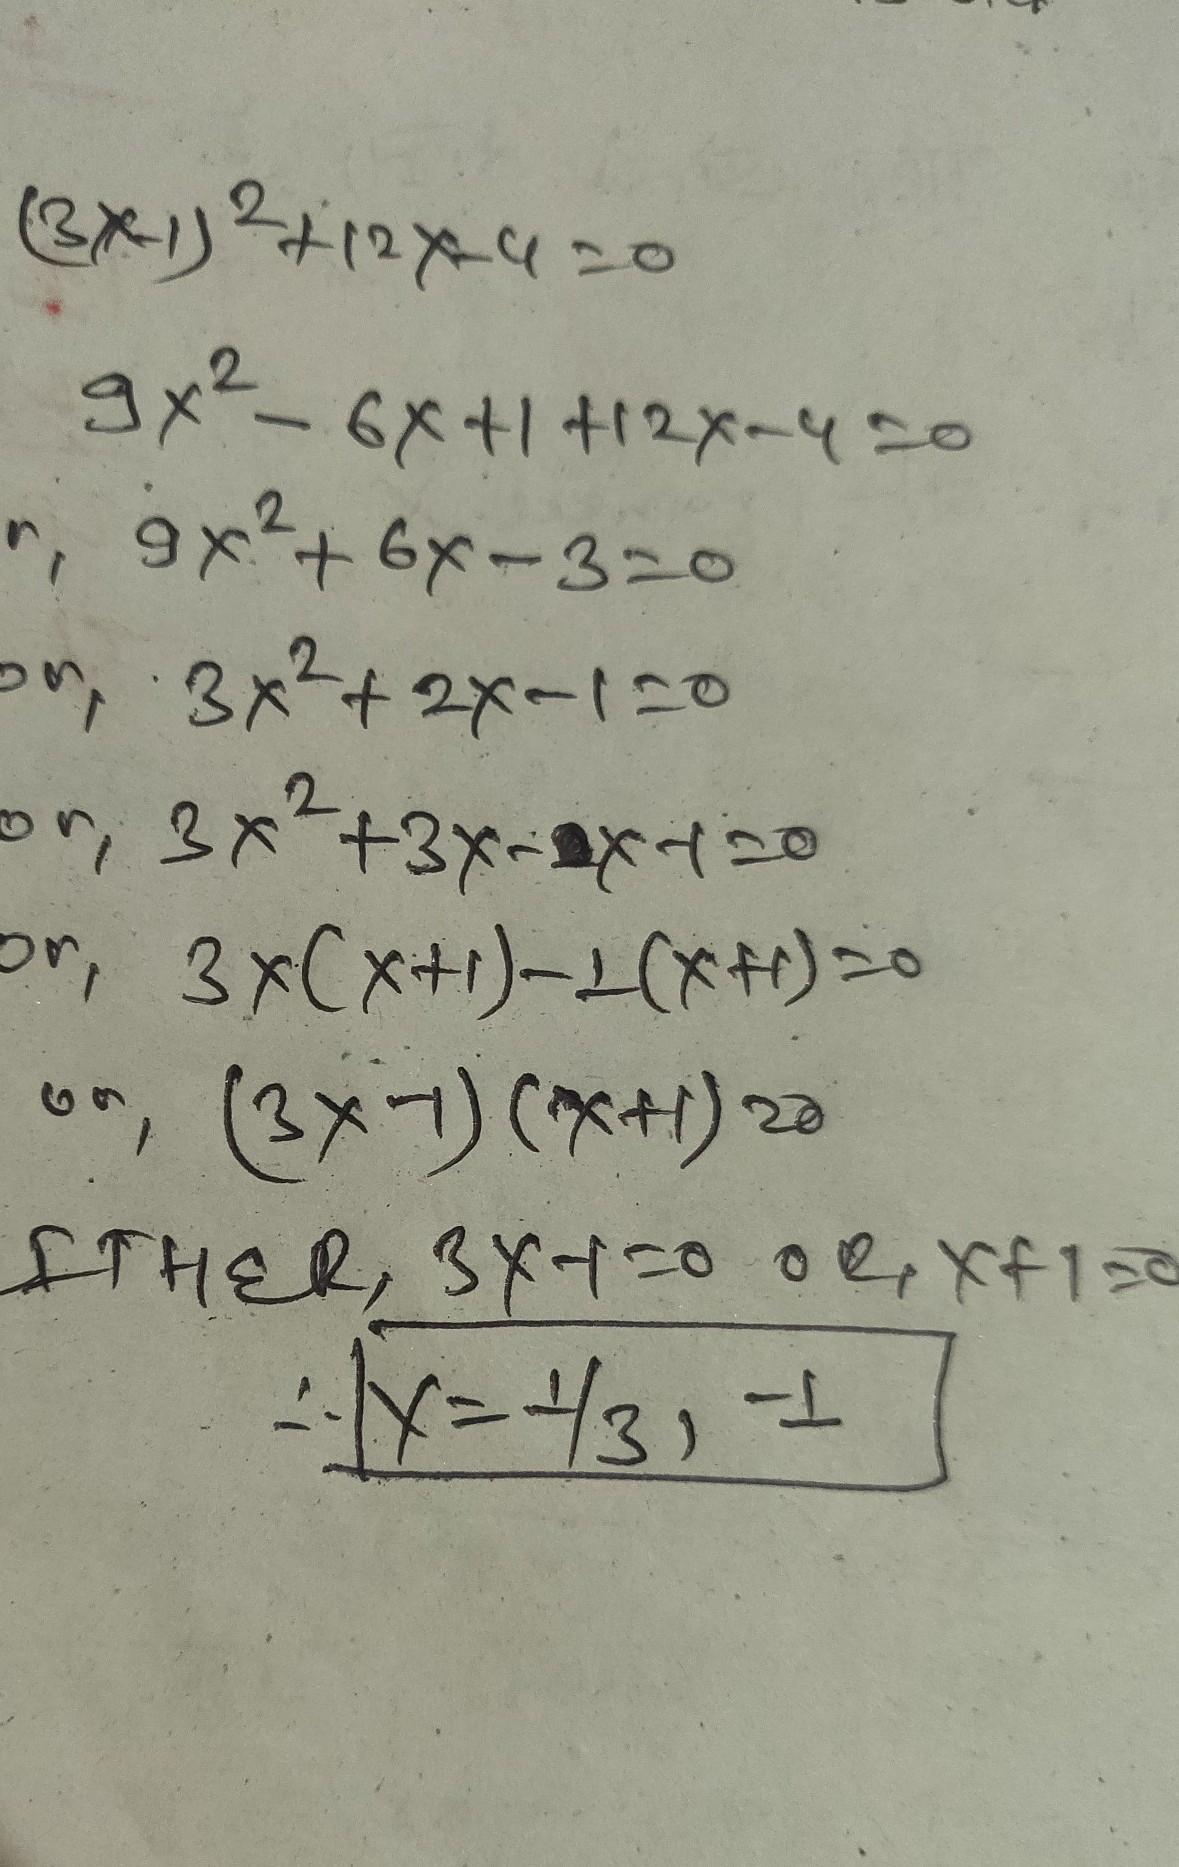 (3x-1)²+12x-4=0
9x²-6x+1+12x-4=0
r, 9x²+6x-3=0
or, 3x²+2x-1=0
or, 3x²+3x-x-1=0
or, 3x(x+1)-1(x+1)=0
or, (3x-1)(x+1)=0
ITHER, 3x-1=0 OR, x+1=0
∴ x=1/3, -1